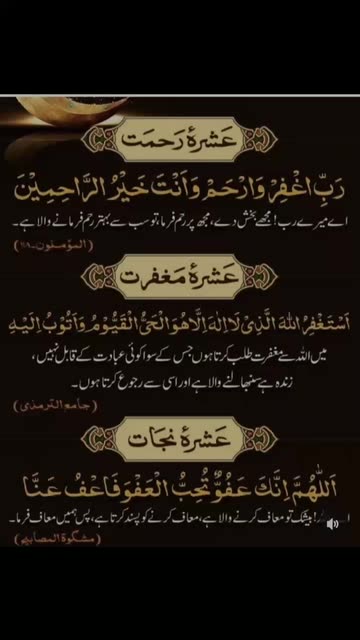 عشرۂ رحمت
رَبِّ اغْفِرْ وَارْحَمْ وَاَنْتَ خَيْرُ الرَّاحِمِيْنَ
اے میرے رب! مجھے بخش دے، مجھ پر رحم فرما، تو سب سے بہتر رحم فرمانے والا ہے۔
(المؤمنون-۱۱۸)
عشرۂ مغفرت
اَسْتَغْفِرُ اللهَ الَّذِیْ لَا اِلٰهَ اِلَّا هُوَ الْحَیُّ الْقَيُّوْمُ وَاَتُوْبُ اِلَيْهِ
میں اللہ سے مغفرت طلب کرتا ہوں جس کے سوا کوئی عبادت کے قابل نہیں،
زندہ ہے سنبھالنے والا ہے اور اسی سے رجوع کرتا ہوں۔
(جامع الترمذی)
عشرۂ نجات
اَللّٰهُمَّ اِنَّكَ عَفُوٌّ تُحِبُّ الْعَفْوَ فَاعْفُ عَنَّا
بیشک تو معاف کرنے والا ہے، معاف کرنے کو پسند کرتا ہے، پس ہمیں معاف فرما۔
(مشکوۃ المصابیح)